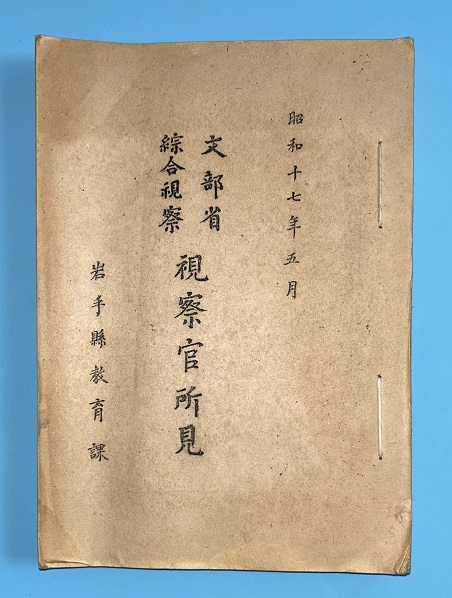 昭和十七年五月
文部省
綜合視察
視察官所見
岩手縣教育課